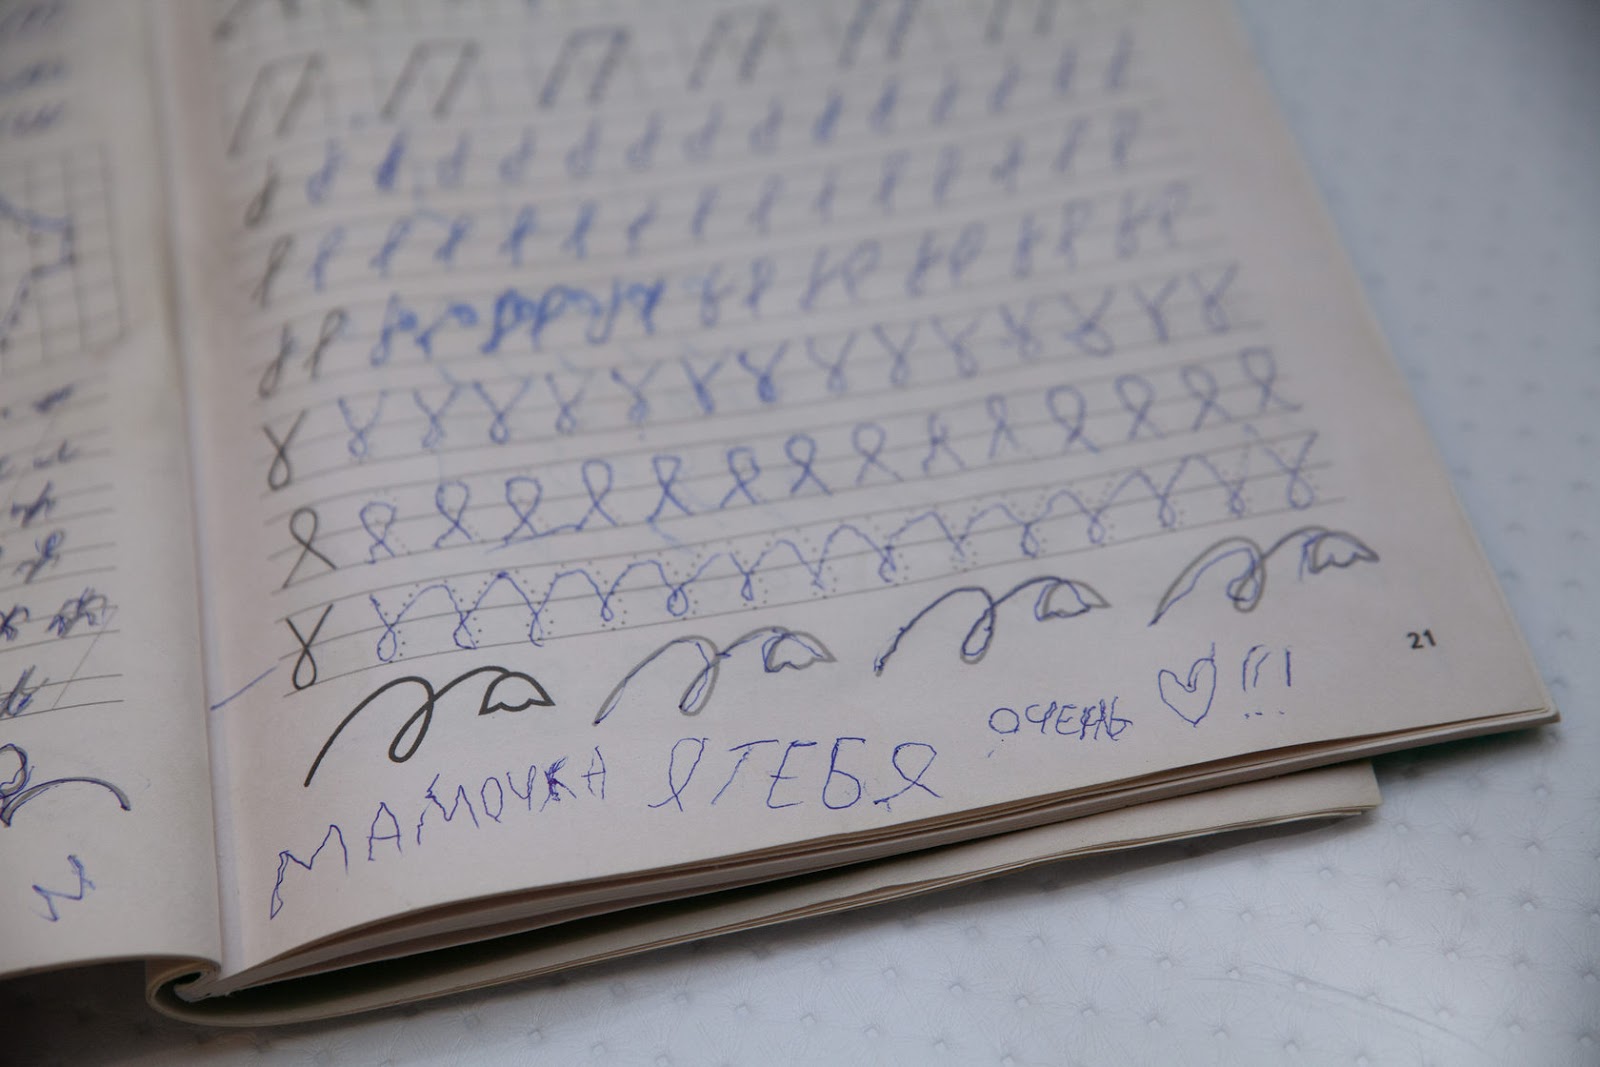 21
МАМОЧКА Я ТЕБЯ ОЧЕНЬ ♡!!!